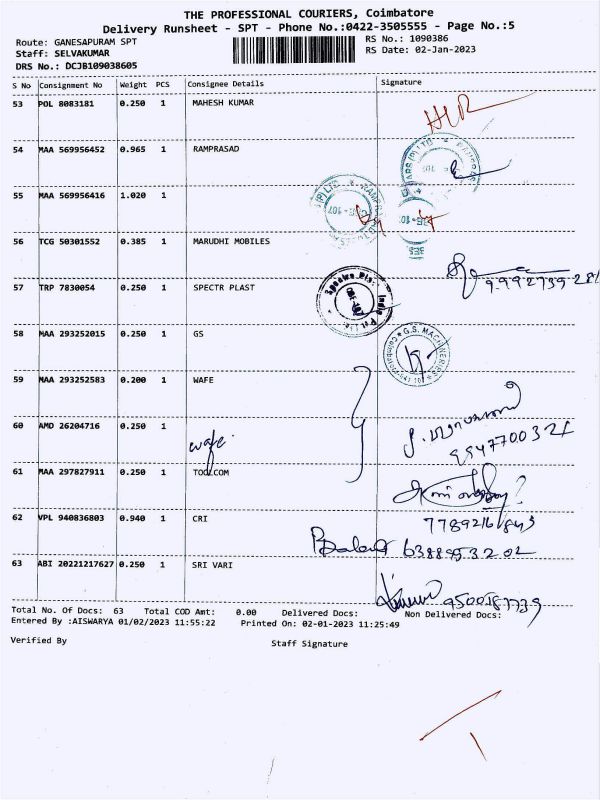 THE PROFESSIONAL COURIERS, Coimbatore
Delivery Runsheet - SPT - Phone No.:0422-3505555 - Page No.:5
Route: GANESAPURAM SPT
RS No.: 1090386
Staff: SELVAKUMAR
RS Date: 02-Jan-2023
DRS No.: DCJB109038605
S No Consignment No Weight PCS Consignee Details Signature
53 POL 8083181 0.250 1 MAHESH KUMAR
54 MAA 569956452 0.965 1 RAMPRASAD
55 MAA 569956416 1.020 1
56 TCG 50301552 0.385 1 MARUDHI MOBILES
57 TRP 7830054 0.250 1 SPECTR PLAST
58 MAA 293252015 0.250 1 GS
G.S. MACHINERIES
59 MAA 293252583 0.200 1 WAFE
60 AMD 26204716 0.250 1
wafe
61 MAA 297827911 0.250 1 TOOLCOM
62 VPL 940836803 0.940 1 CRI
63 ABI 20221217627 0.250 1 SRI VARI
Total No. Of Docs: 63 Total COD Amt: 0.00 Delivered Docs: Non Delivered Docs:
Entered By :AISWARYA 01/02/2023 11:55:22 Printed On: 02-01-2023 11:25:49
Verified By Staff Signature